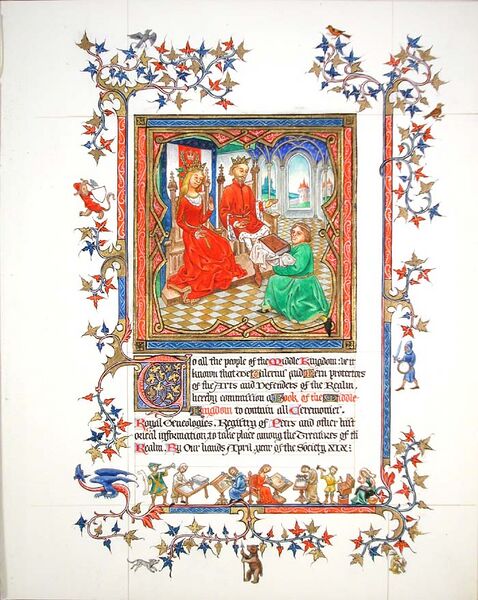 To all the people of the Middle Kingdom: be it
known that We Valerius and Bern protectors
of the Arts and Defenders of the Realm,
hereby commission a Book of the Middle
Kingdom to contain all Ceremonies,
Royal Geneologies, Registry of Peers and other hist
orical information to take place among the Treasures of th
Realm. By Our hands April, year of the Society XIX: